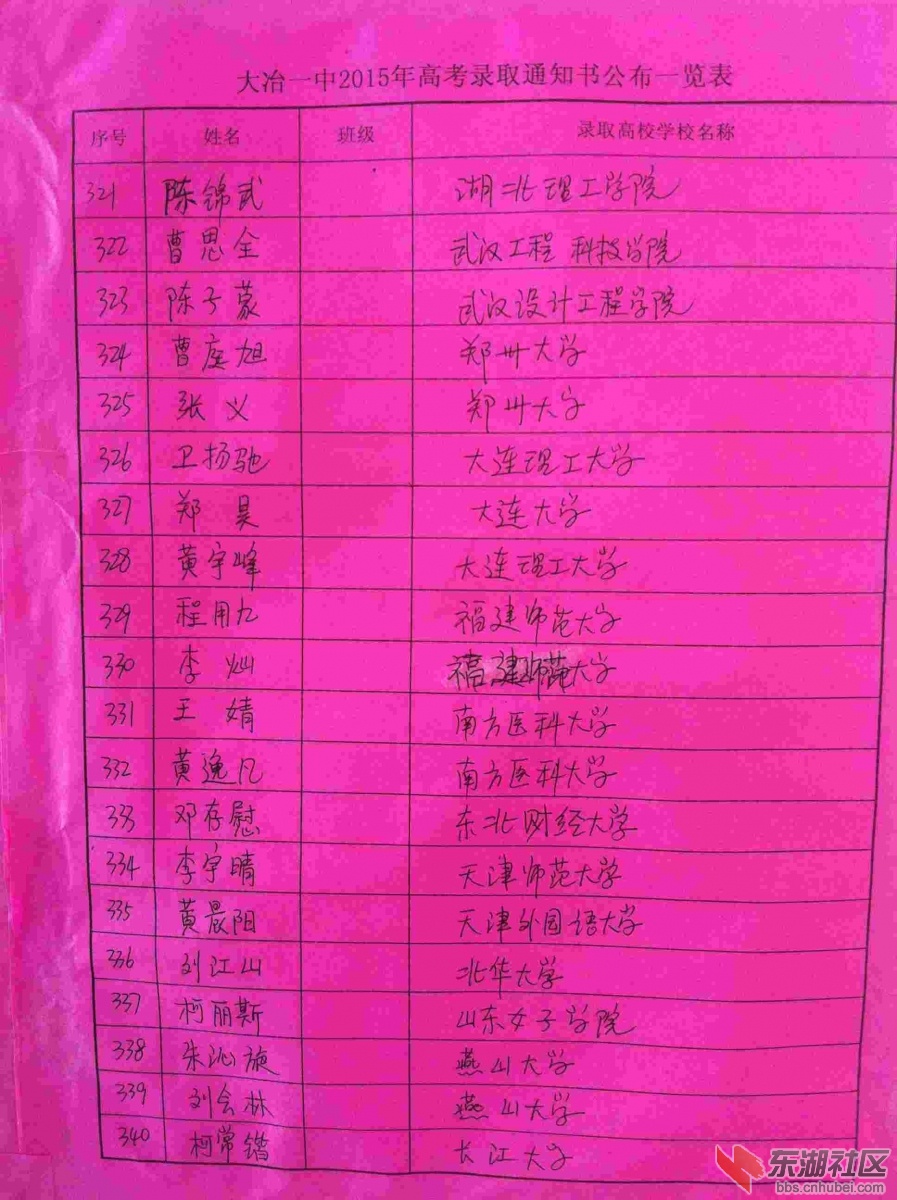 大冶一中2015年高考录取通知书公布一览表
序号 姓名 班级 录取高校学校名称
321 陈锦武 湖北理工学院
322 曹思全 武汉工程 科技学院
323 陈子蒙 武汉设计工程学院
324 曹庭旭 郑州大学
325 张义 郑州大学
326 卫扬驰 大连理工大学
327 郑昊 大连大学
328 黄宇峰 大连理工大学
329 程用九 福建师范大学
330 李灿 福建师范大学
331 王婧 南方医科大学
332 黄逸凡 南方医科大学
333 邓存慰 东北财经大学
334 李宇晴 天津师范大学
335 黄晨阳 天津外国语大学
336 刘江山 北华大学
337 柯丽斯 山东女子学院
338 朱沁旋 燕山大学
339 刘会林 燕山大学
340 柯常锴 长江大学
东湖社区
bbs.cnhubei.com